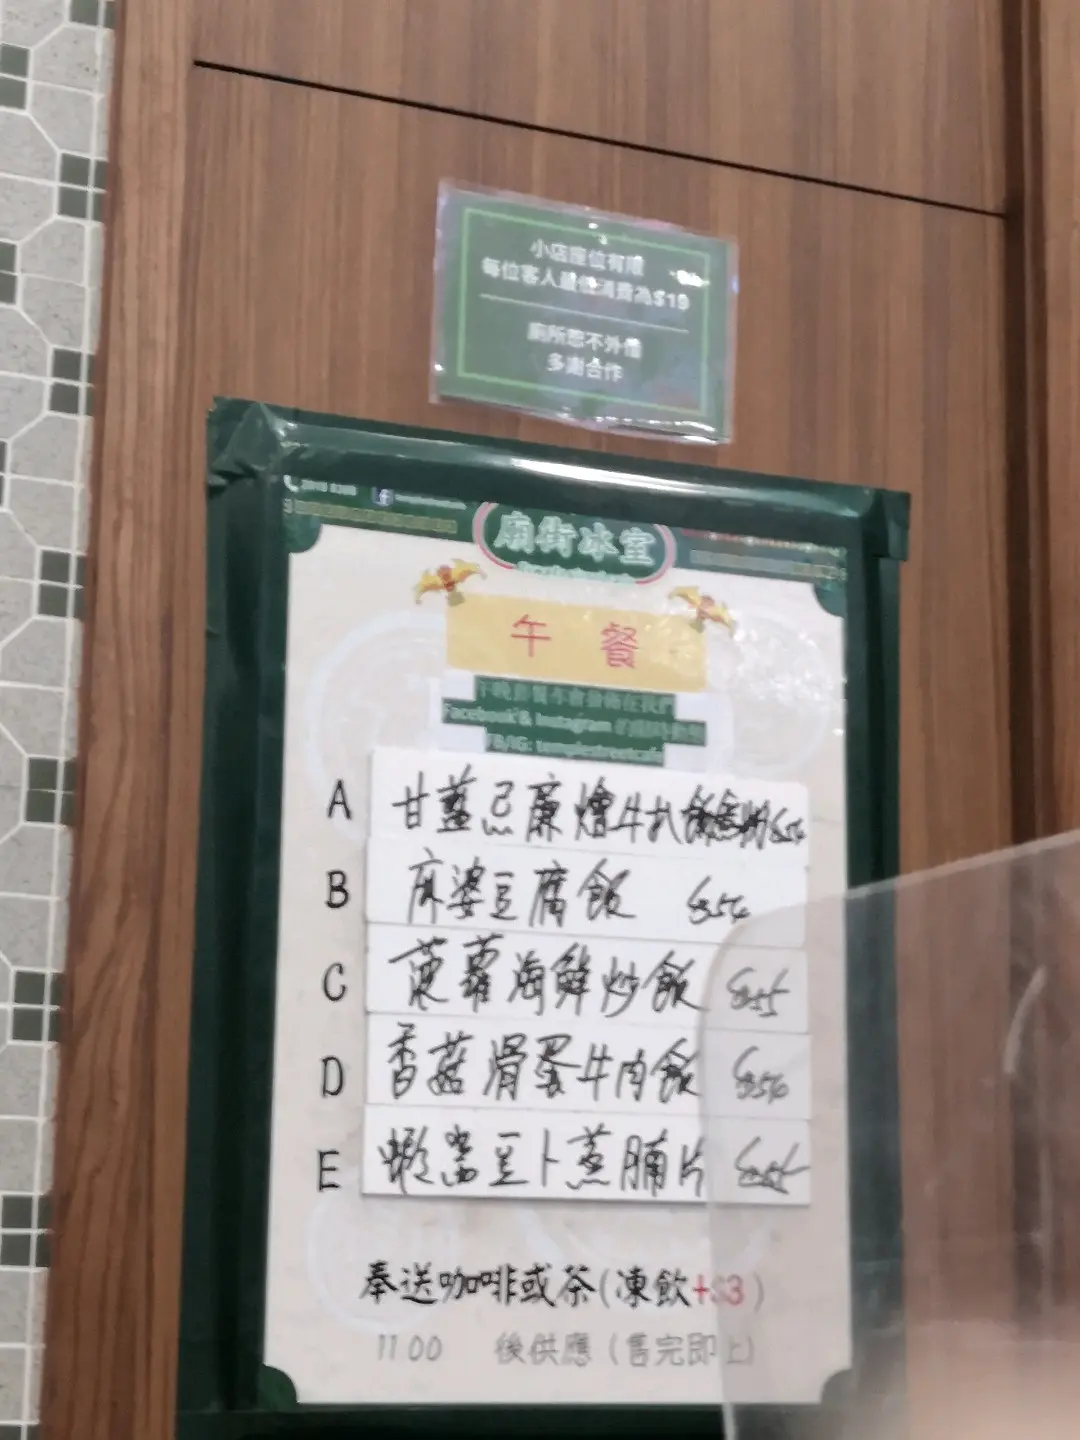 小店座位有限
每位客人最低消費為$19
廁所恕不外借
多謝合作
廟街冰室
午餐
Facebook & Instagram
FB/IG: templestreetcafe
A 甘筍忌廉燴牛扒飯
B 麻婆豆腐飯 $54
C 菠蘿海鮮炒飯 $55
D 香菇滑蛋牛肉飯 $56
E 豆卜蒸腩片
奉送咖啡或茶(凍飲+$3)
11 00 後供應(售完即止)